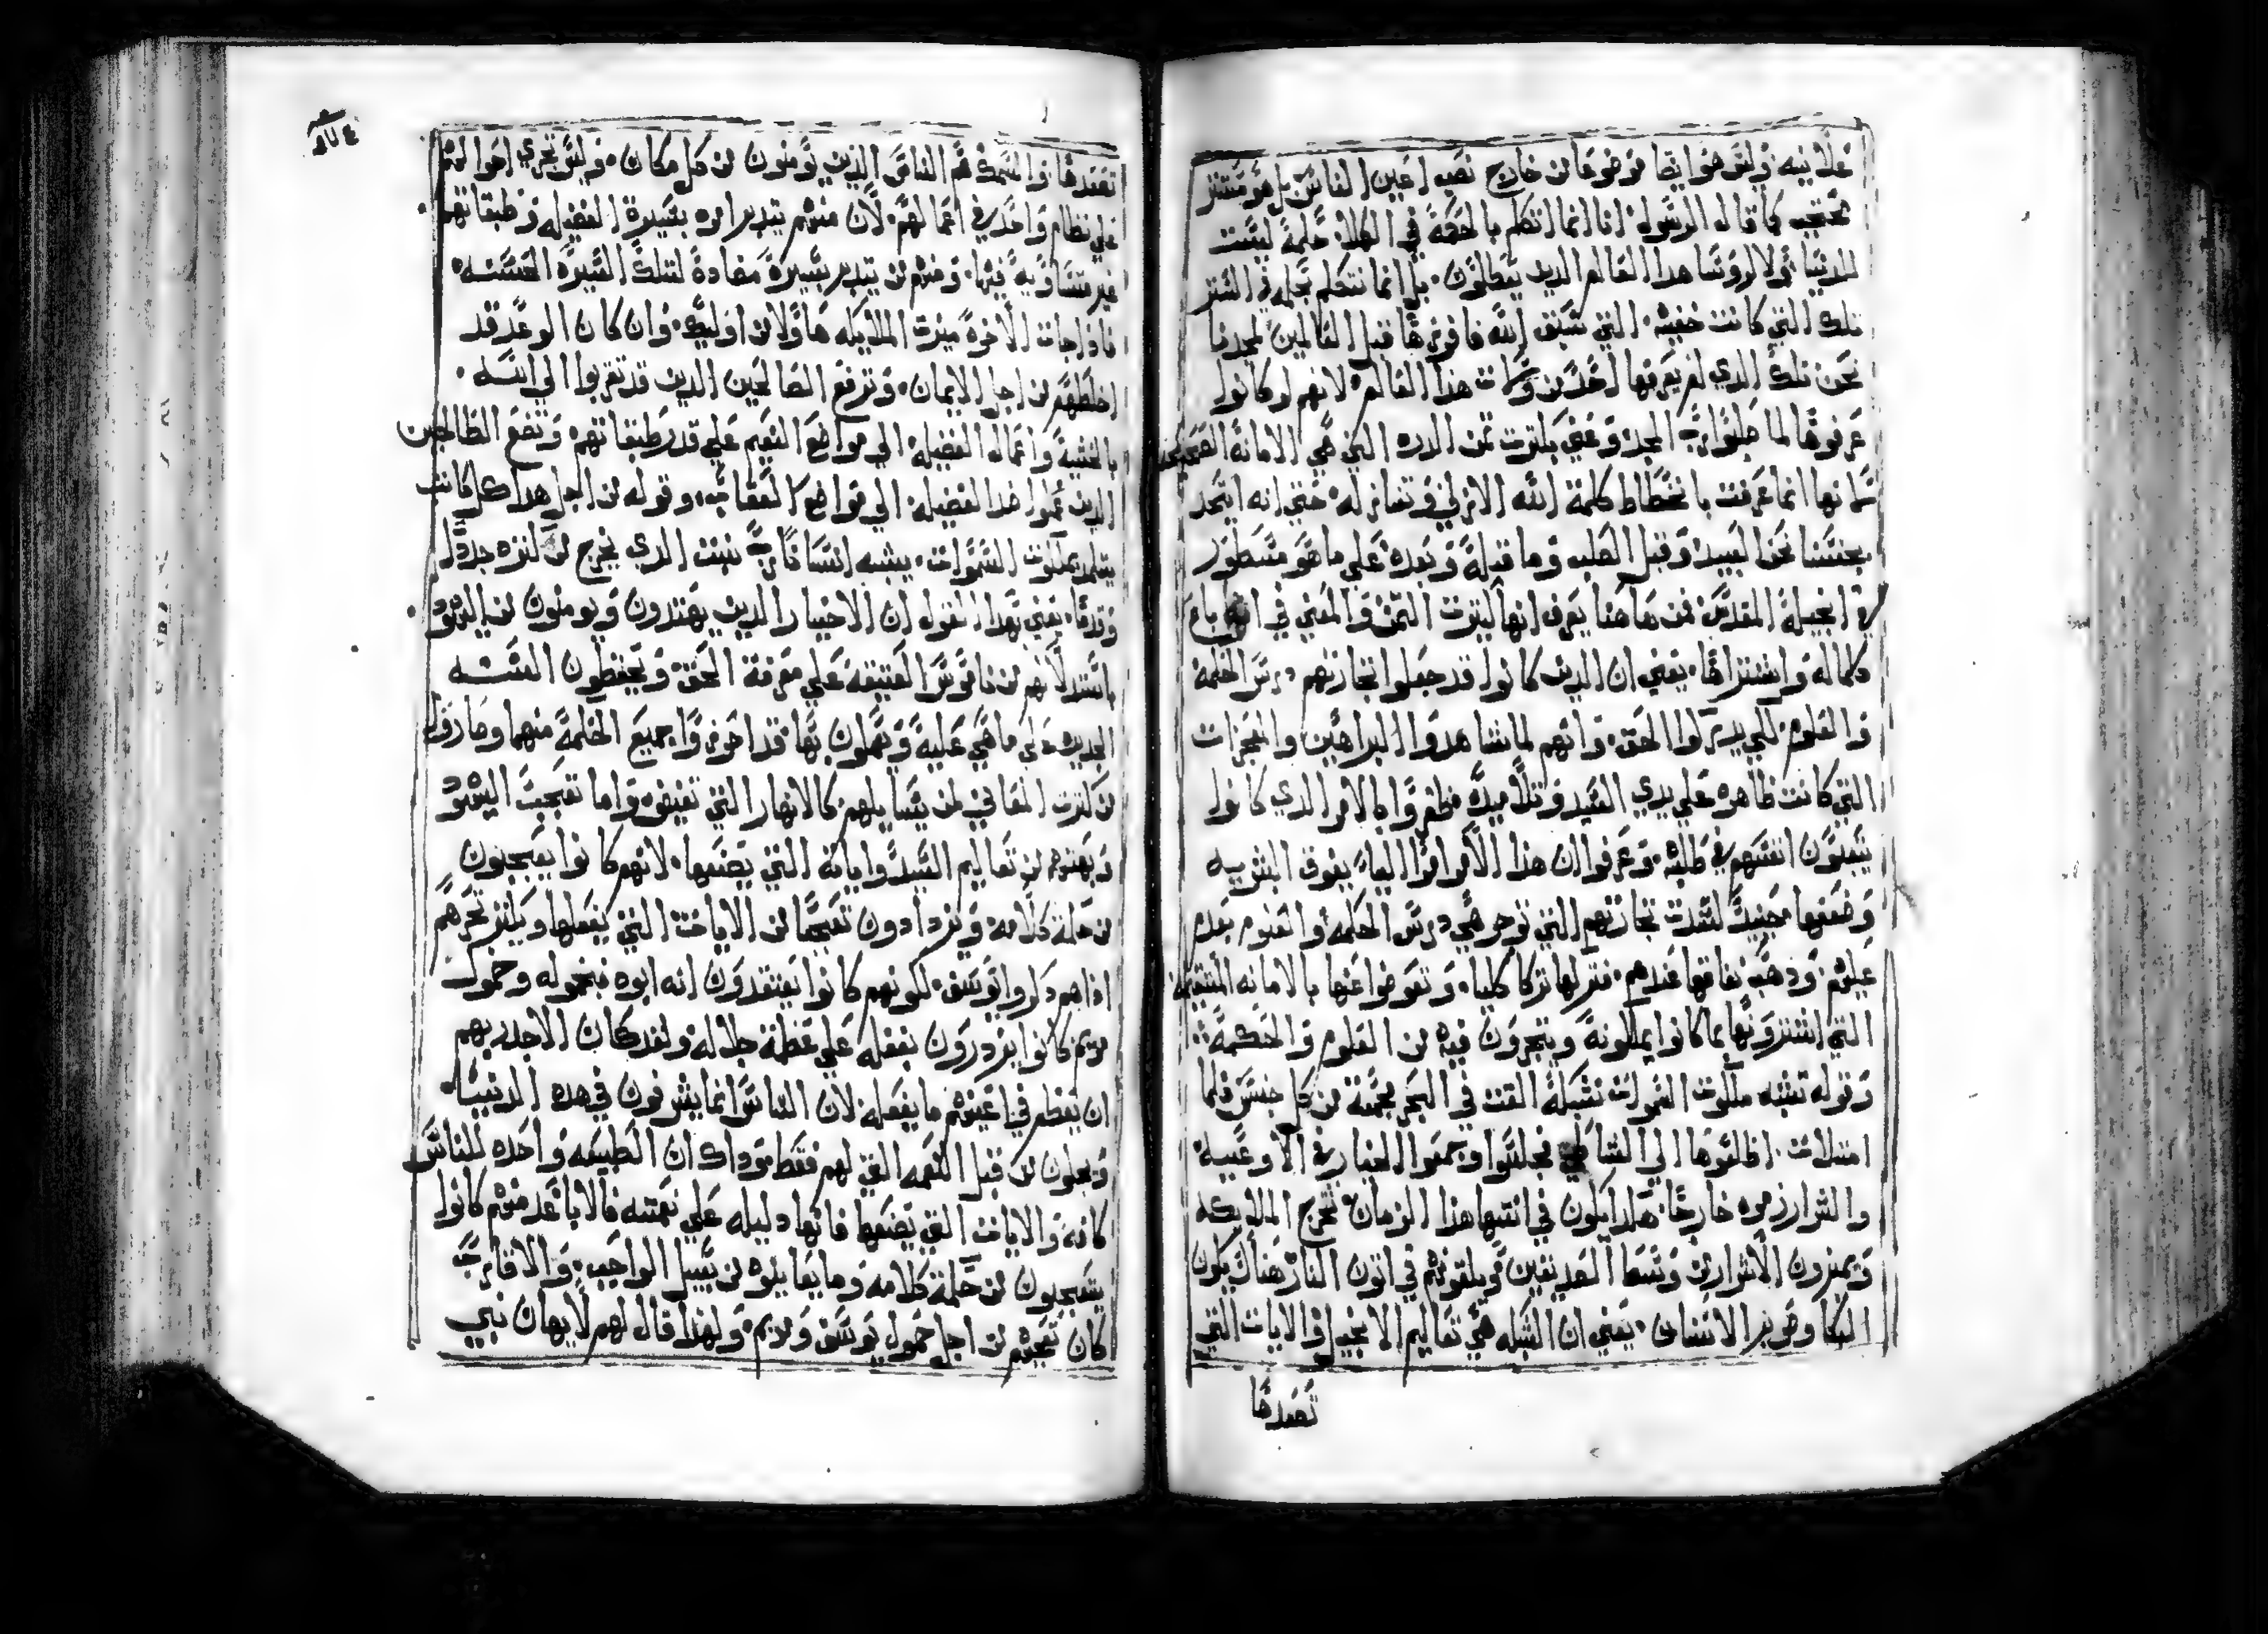 علانيه وليس هو ايضا موضوعا من خارج نصب اعين الناس بل هو مستتر
محتجب كما قال الرسول اننا انما نتكلم بالحكمة في الكملا حكمة ليست
للدنيا ولا لروسا هدا العالم الدين يبطلون بل انما نتكلم بحكمة في الستر
تلك التي كانت خفيه التي سبق الله فافرزها قبل العالمين لمجدنا
نحن تلك الدي لم يعرفها احد من روسا هذا العالم لانهم لو كانوا
عرفوها لما صلبوا رب المجد وعني بكثرت ثمن الدره التي هي الامانة
انها انما عرفت بانحطاط كلمة الله الازلي وتنازله حتي انه اتحد
بجنسنا نحن العبيد وقبل الصلب وما قبله وبعده علي ما هو مسطور
في انجيله المقدس فمن هاهنا يعرف انها كثيرت الثمن والمعني في انه باع
كماله واشتراها يعني ان الدين كانوا قد جعلوا تجارتهم درس الحكمة
والعلوم لكي يدركوا الحق وانهم لما شاهدوا البراهين والمعجزات
التي كانت ظاهره علي يدي السيد وتلاميده فظفروا بالامر الدي كانوا
يتعبون انفسهم في طلبه وعرفوا ان هذا الامر امرا الهيا يفوق البشريه
وضعفها حينيد كسدت تجارتهم التي هي درس الحكمة والعلوم
عليهم ودهب نفاقها عندهم فتركها تركا كليا وتعوضوا عنها بالامانه المستقيمه
التي اشتروها بما كانوا يملكونه ويتجرون فيه من العلوم والحكمة
وقوله تشبه ملكوت السموات شبكة القت في البحر فجمعت من كل جنس فلما
امتلات اطلعوها الي الشاطي فجلسوا وجمعوا الخيار في الاوعيه
والشرار رموه خارجا هكدا يكون في انتها هذا الزمان تخرج الملايكه
ويميزون الاشرار من وسط الصديقين ويلقونهم في اتون النار هناك يكون
البكا وصرير الاسنان يعني ان الشبكه هي تعاليم الانجيل والايات التي
تعضدها
تعضدها والسمك هم الناس الذين يومنون من كل مكان وليس تجري احوالهم
علي نظام واحد في اعمالهم لان منهم من يتدبر بسيرة الفضيله وطبقاتهم
غير متساويه فيها ومنهم من يتدبر بسيرة مضادة لتلك السيرة الحسنه
فاذا جات الاخرة ميزت الملايكه هاولا من اوليك وان كان الوعد قد
اخلطهم من اجل الايمان وترفع الصالحين الدين قد تقربوا الي الله
بالخشية واعمال الفضيلة الي مواضع النعيم علي قدر طبقاتهم وتضع الطالحين
الدين عملوا ضد الفضيلة الي مواضع العقاب وقوله من اجل هدا كل كاتب
يتلمد لملكوت السموات يشبه انسانا رب بيت الدي يخرج من كنزه جددا
وقدما يعني بهدا القول ان الاخيار الدين يهتدون ويومنون من اليهود
باستدلالهم من ناموس العتيقة علي معرفة الحق ويحفظون السنه
الجديده علي ما هي عليه ويعملون بها قد احرزوا جميع الحكمة منهما وصارت
من كثرت المعاني لمن يسايلهم كالانهار التي تفيض واما تعجب اليهود
وبهتهم من تعاليم السيد واياته التي يصنعها لانهم كانوا يعجبون
من حكمة كلامه ويزدادون تعجبا من الايات التي يفعلها ويكثر تحيرهم
اذا هم ذكروا يوسف لكونهم كانوا يعتقدون انه ابوه فبخموله وخمول
مريم كانوا يزدرون بفعله علي عظمة جلاله ولقد كان الاجدر بهم
ان يعظم في اعينهم ما يفعله لان الناس انما يشرفون في هده الدنيا
ويجلون من قبل النعمه التي لهم فقط وداك ان الطبيعه واحده للناس
كافة والايات التي يصنعها فانها دليله علي نعمته فالابا عد منهم كانوا
يتعجبون من حكمة كلامه وما يعاينوه من سبيل الواجب والاقارب
كان تعجبهم من اجل خمول يوسف ومريم ولهذا قال لهم لا يهان نبي